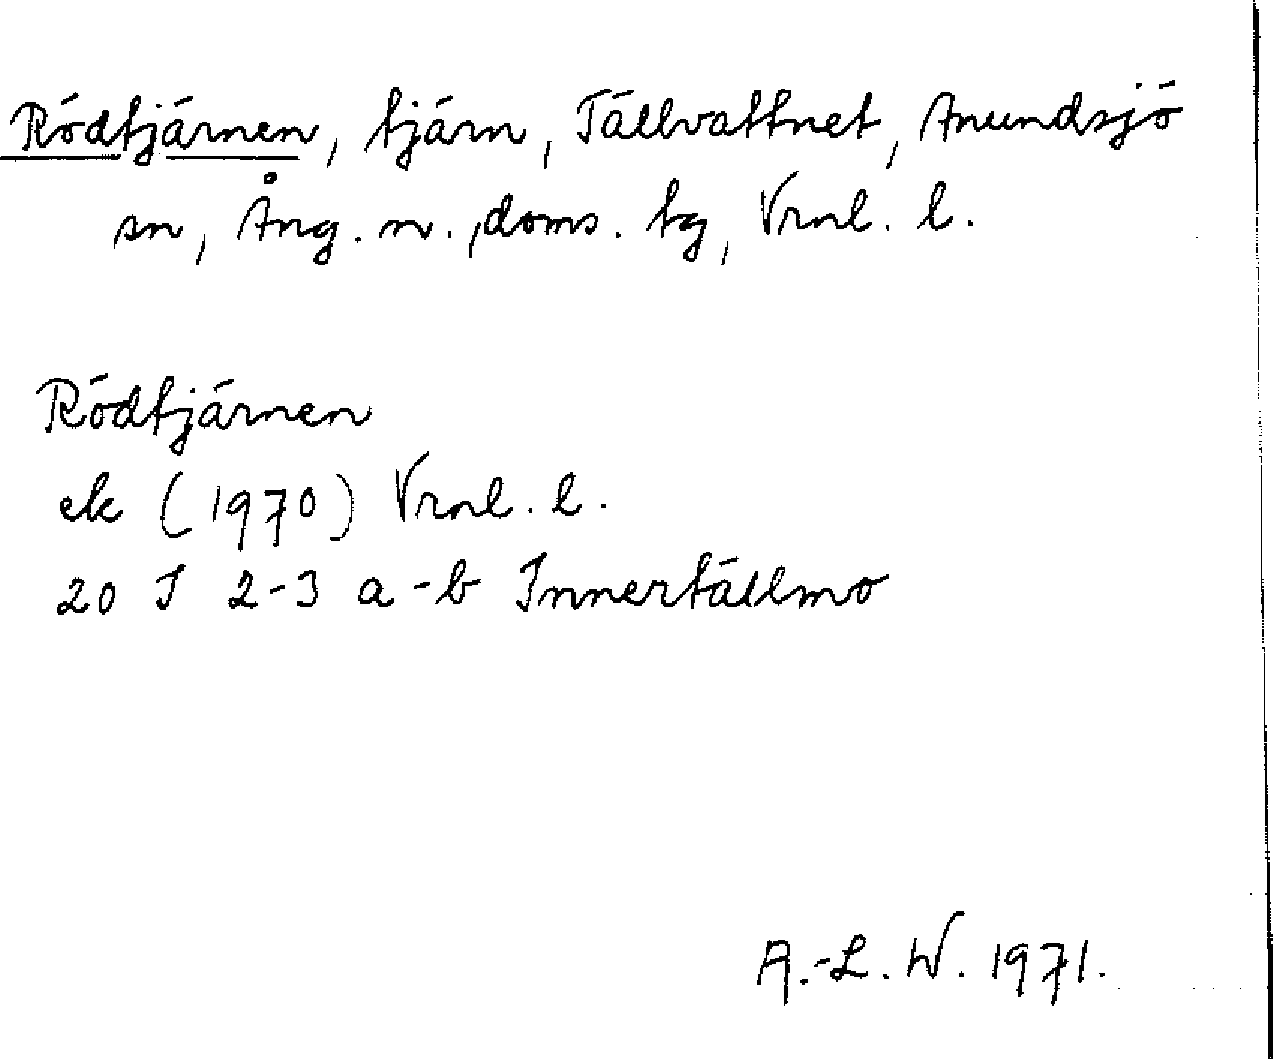 Rödtjärnen, tjärn, Tällvattnet, Anundsjö
sn, Ång. n. doms. tg, Vrnl. l.
Rödtjärnen
ek (1970) Vrnl. l.
20 I 2-3 a-b Innertällmo
A.-L. W. 1971.